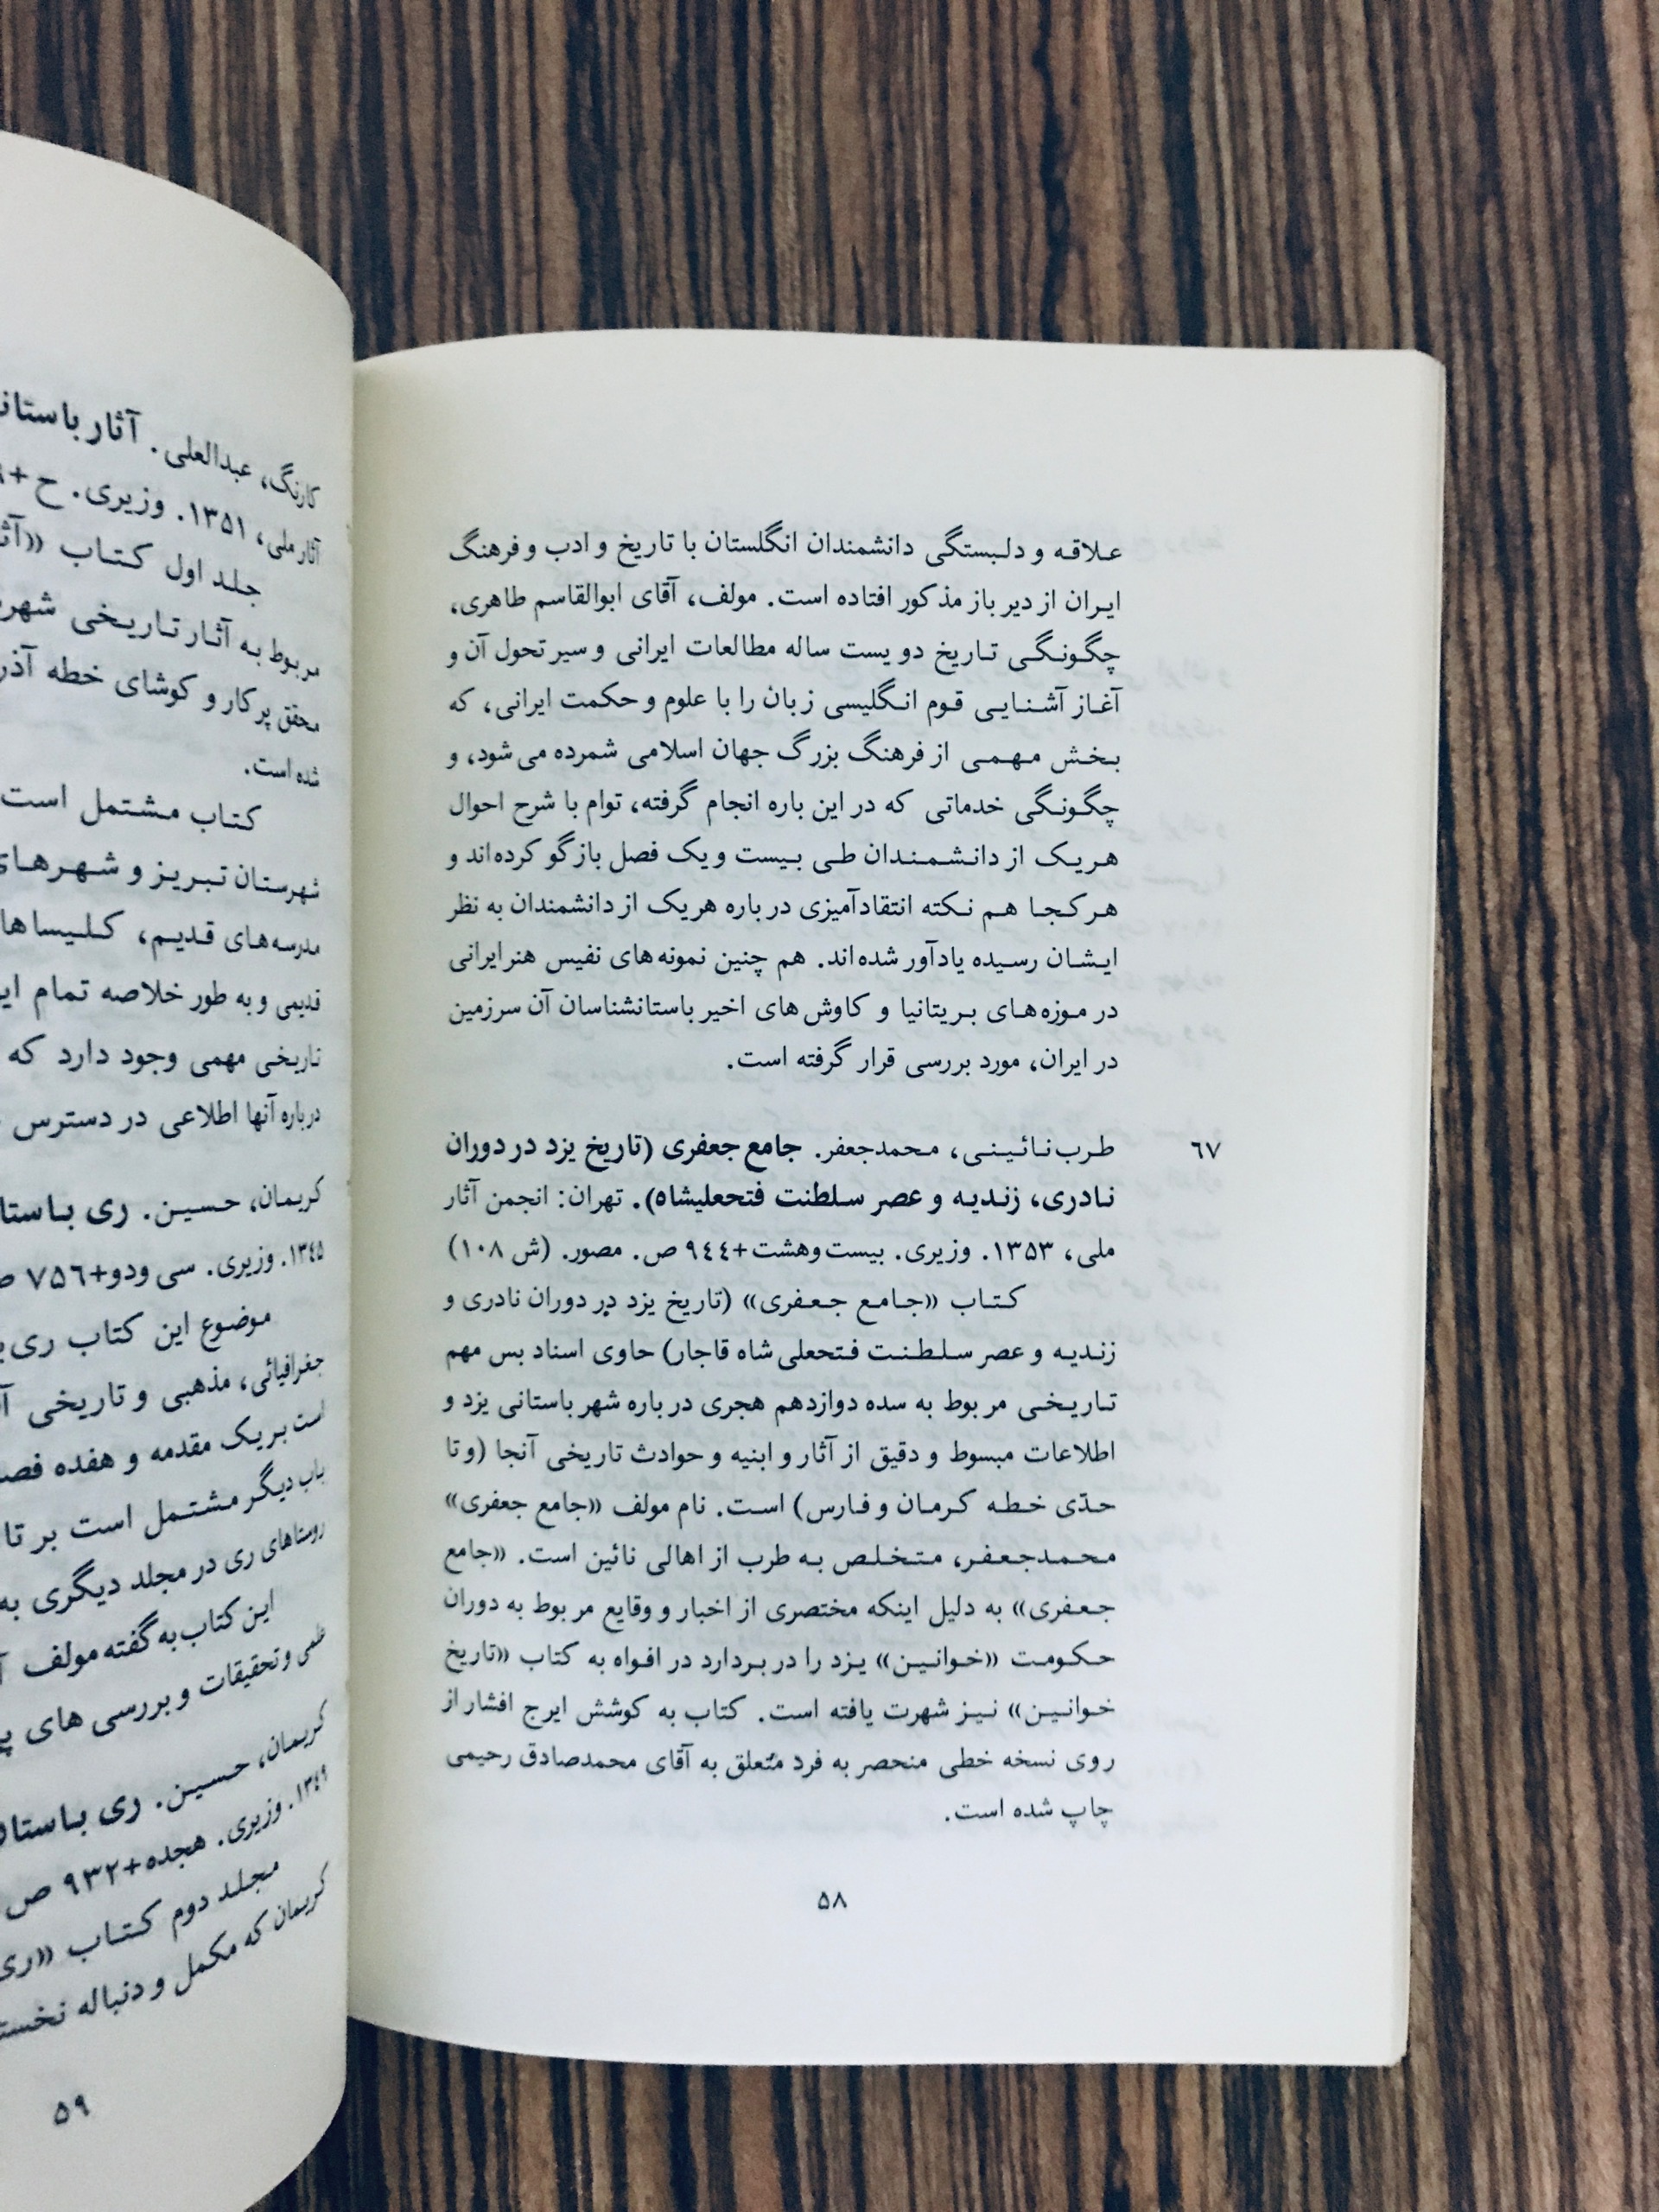 علاقه و دلبستگی دانشمندان انگلستان با تاریخ و ادب و فرهنگ
ایران از دیر باز مذکور افتاده است. مولف، آقای ابوالقاسم طاهری،
چگونگی تاریخ دویست ساله مطالعات ایرانی و سیر تحول آن و
آغاز آشنایی قوم انگلیسی زبان را با علوم و حکمت ایرانی، که
بخش مهمی از فرهنگ بزرگ جهان اسلامی شمرده می‌شود، و
چگونگی خدماتی که در این باره انجام گرفته، توام با شرح احوال
هریک از دانشمندان طی بیست و یک فصل بازگو کرده‌اند و
هرکجا هم نکته انتقادآمیزی درباره هریک از دانشمندان به نظر
ایشان رسیده یادآور شده‌اند. هم چنین نمونه‌های نفیس هنر ایرانی
در موزه‌های بریتانیا و کاوش‌های اخیر باستانشناسان آن سرزمین
در ایران، مورد بررسی قرار گرفته است.
٦٧ طرب نائینی، محمدجعفر. جامع جعفری (تاریخ یزد در دوران
نادری، زندیه و عصر سلطنت فتحعلیشاه). تهران: انجمن آثار
ملی، ۱۳۵۳. وزیری. بیست‌وهشت+۹٤٤ ص. مصور. (ش ۱۰۸)
کتاب «جامع جعفری» (تاریخ یزد در دوران نادری و
زندیه و عصر سلطنت فتحعلی شاه قاجار) حاوی اسناد بس مهم
تاریخی مربوط به سده دوازدهم هجری درباره شهر باستانی یزد و
اطلاعات مبسوط و دقیق از آثار و ابنیه و حوادث تاریخی آنجا (و تا
حدّی خطه کرمان و فارس) است. نام مولف «جامع جعفری»
محمدجعفر، متخلص به طرب از اهالی نائین است. «جامع
جعفری» به دلیل اینکه مختصری از اخبار و وقایع مربوط به دوران
حکومت «خوانین» یزد را در بردارد در افواه به کتاب «تاریخ
خوانین» نیز شهرت یافته است. کتاب به کوشش ایرج افشار از
روی نسخه خطی منحصر به فرد متعلق به آقای محمدصادق رحیمی
چاپ شده است.
۵۸
کارنگ، عبدالعلی. آثار باستانی
آثار ملی، ۱۳۵۱. وزیری. ح+
جلد اول کتاب «
مربوط به آثار تاریخی
محقق پرکار و کوشای خطه
شده است.
کتاب مشتمل است
شهرستان تبریز و شهرهای
مدرسه‌های قدیم، کلیساها
قدیمی و به طور خلاصه تمام
تاریخی مهمی وجود دارد که
درباره آنها اطلاعی در دسترس
کریمان، حسین. ری
۱۳٤۵. وزیری. سی ودو+۷۵٦
موضوع این کتاب
جغرافیائی، مذهبی و تاریخی
است بر یک مقدمه و هفده
باب دیگر مشتمل است بر
روستاهای ری در مجلد دیگری به
این کتاب به گفته مولف
علمی و تحقیقات و بررسی های
کریمان، حسین. ری
۱۳٤۹. وزیری. هجده+۹۳۲ ص
مجلد دوم کتاب «ری
کریمان که مکمل و دنباله
۵۹